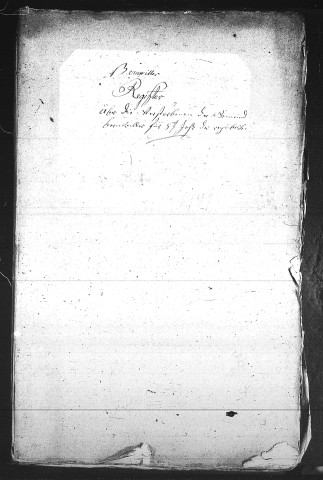 Bernwiller
Register
über die Verstorbenen der Gemeind
bernwiller für 5t Jahr der republ.